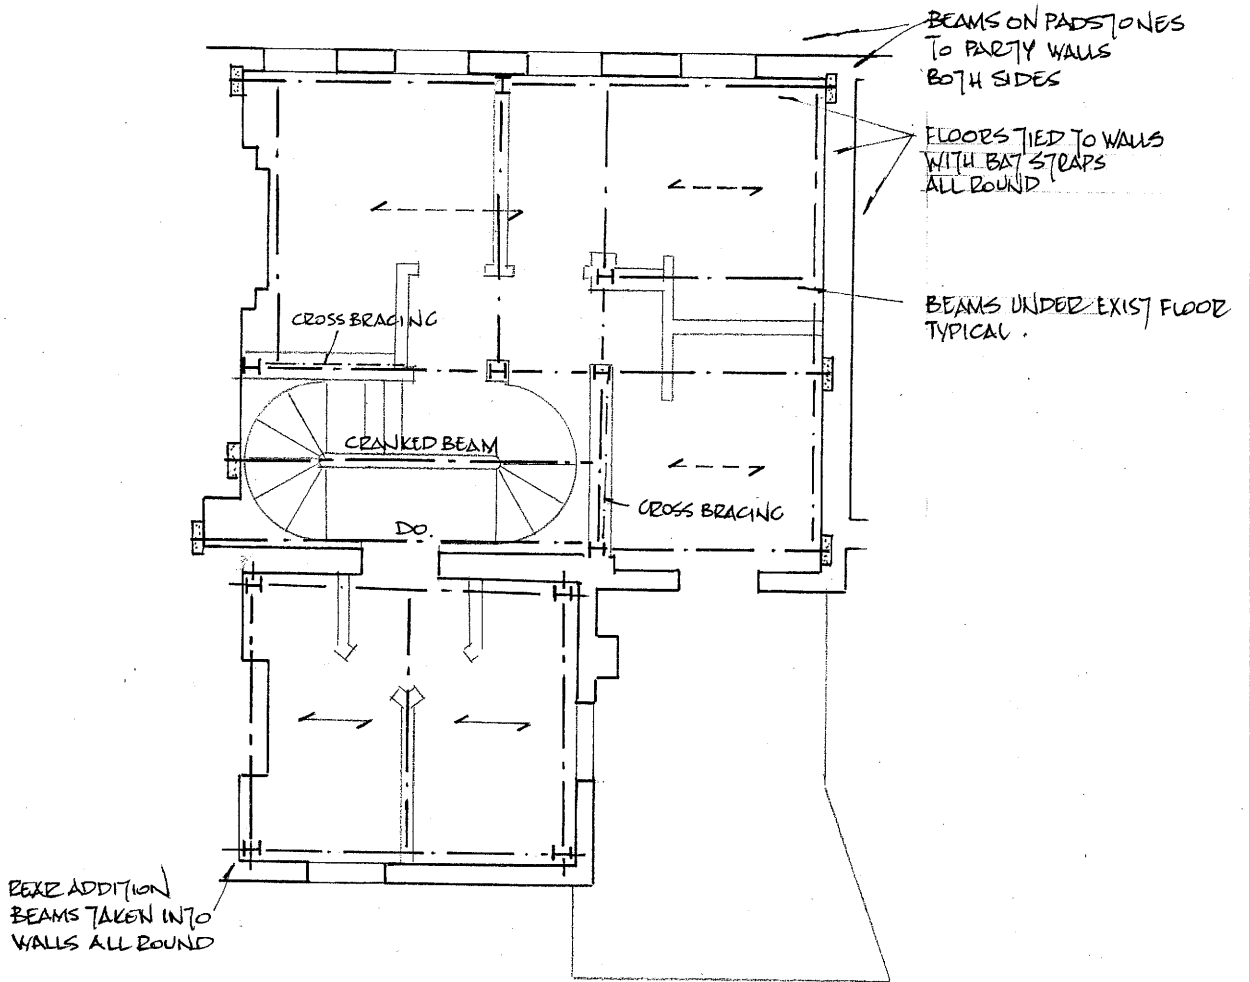 BEAMS ON PADSTONES
TO PARTY WALLS
BOTH SIDES
FLOORS TIED TO WALLS
WITH BAT STRAPS
ALL ROUND
BEAMS UNDER EXIST FLOOR
TYPICAL.
CROSS BRACING
CRANKED BEAM
CROSS BRACING
DO.
REAR ADDITION
BEAMS TAKEN INTO
WALLS ALL ROUND